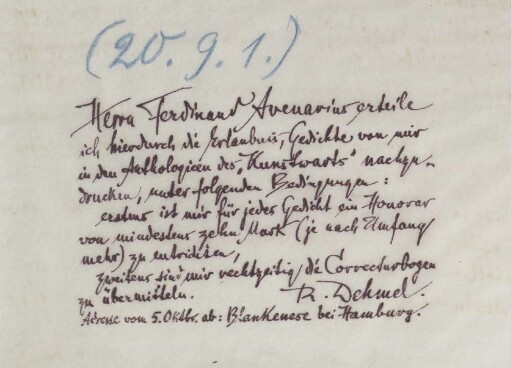 (20. 9. 1.)
Herrn Ferdinand Avenarius erteile
ich hierdurch die Erlaubnis, Gedichte von mir
in den Anthologieen des „Kunstwarts“ nachzu-
drucken, unter folgenden Bedingungen:
erstens ist mir für jedes Gedicht ein Honorar
von mindestens zehn Mark (je nach Umfang
mehr) zu entrichten,
zweitens sind mir rechtzeitig die Correcturbogen
zu übermitteln. R. Dehmel.
Adresse vom 5. Oktbr. ab: Blankenese bei Hamburg.